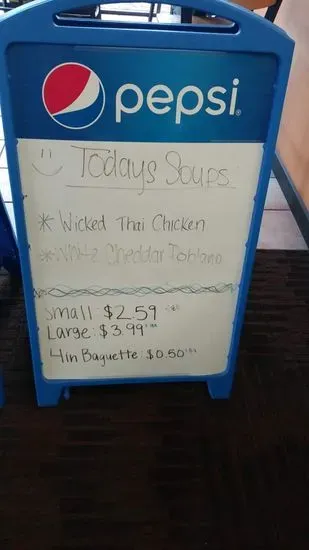 pepsi
Todays Soups
* Wicked Thai Chicken
* Cheddar
Small: $2.59
Large: $3.99
4in Baguette: $0.50